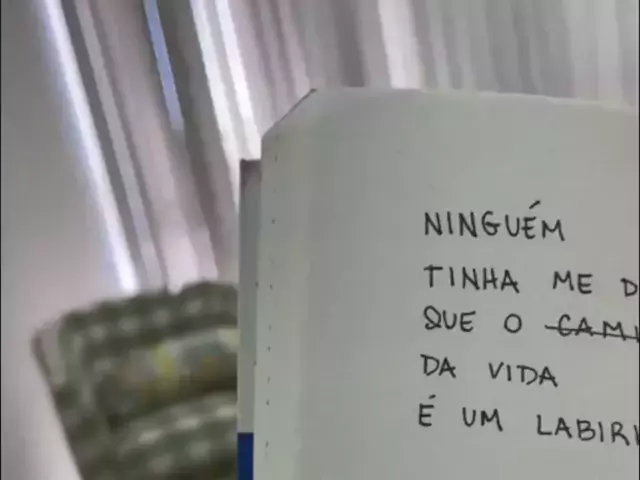 NINGUÉM
TINHA ME D
QUE O CAMI
DA VIDA
É UM LABIRI